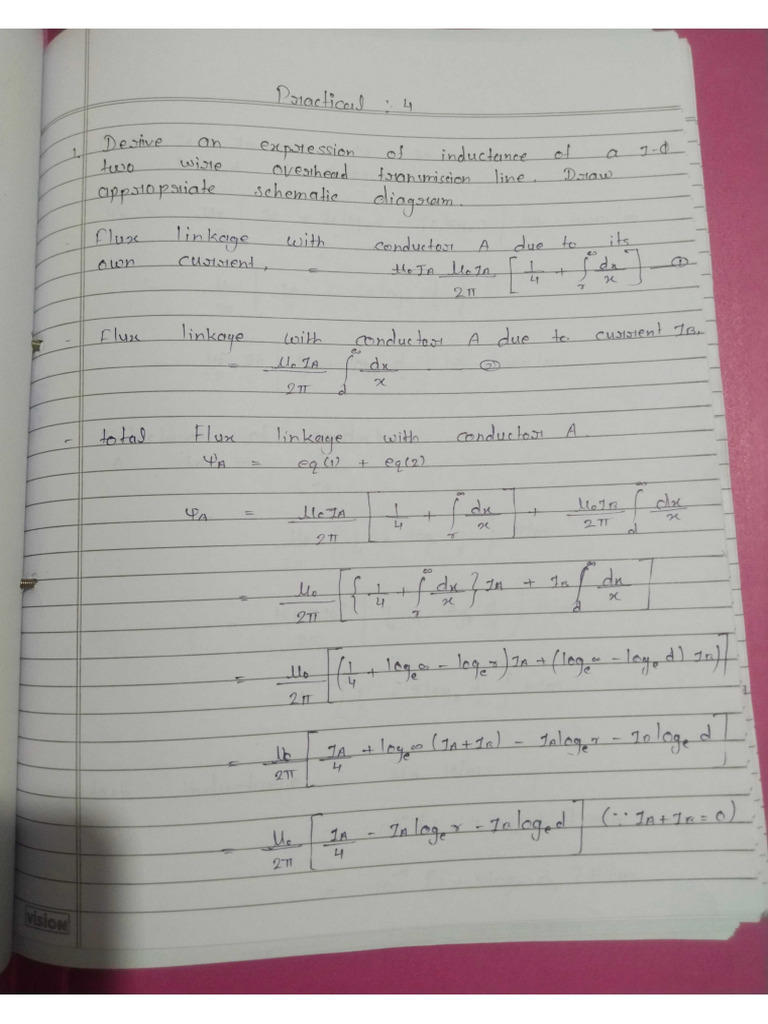 Practical : 4
1. Derive an expression of inductance of a 1-Φ
two wire overhead transmission line. Draw
appropriate schematic diagram.
Flux linkage with conductor A due to its
own current, = μ₀IA μ₀IA/2π [1/4 + ∫_r^∞ dx/x] — ①
- Flux linkage with conductor A due to current IB.
= μ₀IA/2π ∫_d^∞ dx/x — ②
- total Flux linkage with conductor A.
ψA = eq(1) + eq(2)
ψA = μ₀IA/2π [1/4 + ∫_r^∞ dx/x] + μ₀IB/2π ∫_d^∞ dx/x
= μ₀/2π [{1/4 + ∫_r^∞ dx/x} IA + IB ∫_d^∞ dx/x]
= μ₀/2π [(1/4 + logₑ∞ - logₑr) IA + (logₑ∞ - logₑd) IB)]
= μ₀/2π [IA/4 + logₑ∞ (IA + IB) - IA logₑr - IB logₑd]
= μ₀/2π [IA/4 - IA logₑr - IB logₑd] (∵ IA + IB = 0)
ViSiON